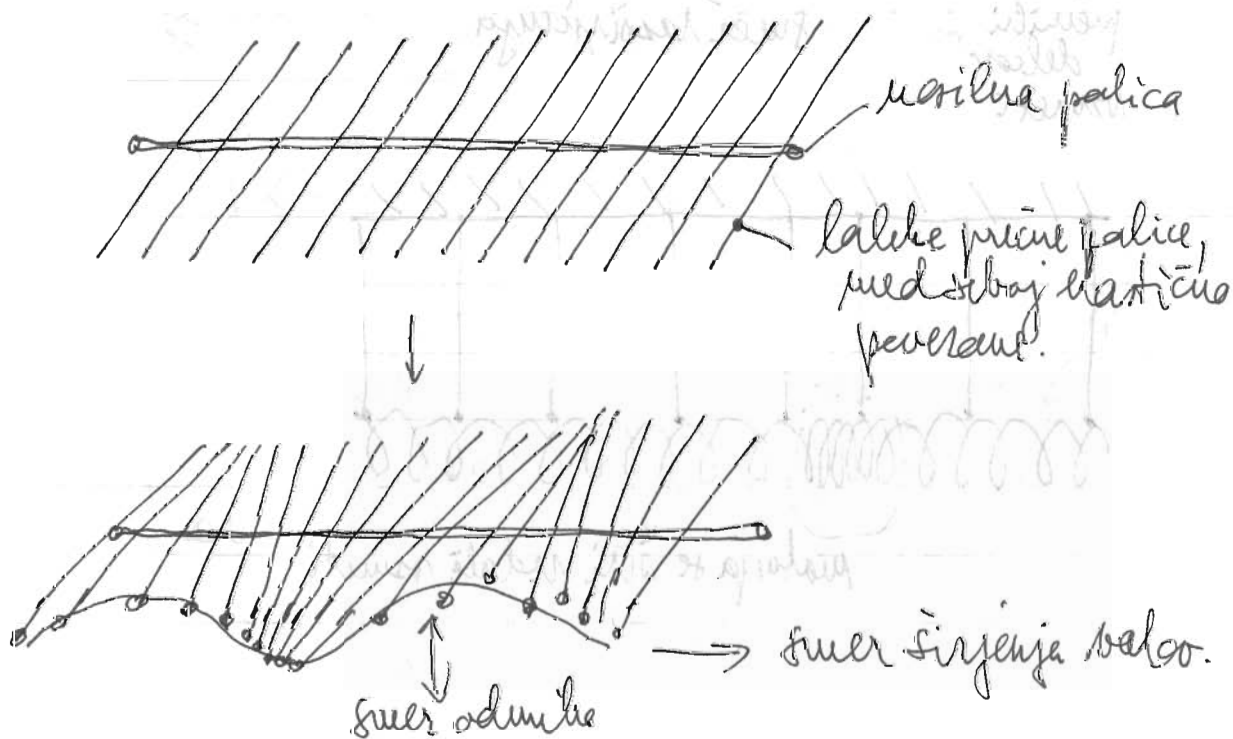 nosilna palica
lahke prečne palice,
med seboj elastično
povezane.
smer širjenja valov.
smer odmika